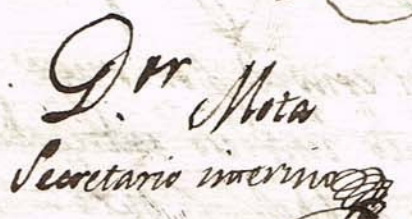 D.or Mota
Secretario interino